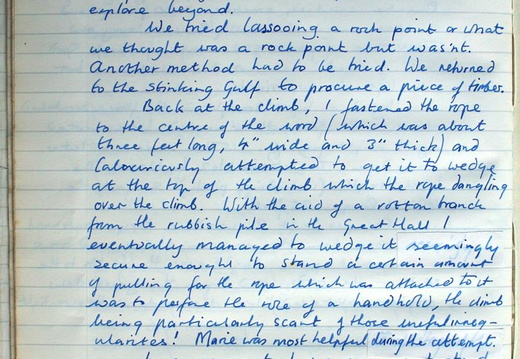 explore beyond.
We tried lassooing a rock point or what
we thought was a rock point but was'nt.
Another method had to be tried. We returned
to the Stinking Gulf to procure a piece of timber.
Back at the climb, I fastened the rope
to the centre of the wood (which was about
three feet long, 4" wide and 3" thick) and
laboriously attempted to get it to wedge
at the top of the climb which the rope dangling
over the climb. With the aid of a rotton branch
from the rubbish pile in the Great Hall I
eventually managed to wedge it seemingly
secure enough to stand a certain amount
of pulling for the rope which was attached to it
was to perform the role of a handhold, the climb
being particularly scant of those useful irreg-
ularities! Marie was most helpful during the attempt.